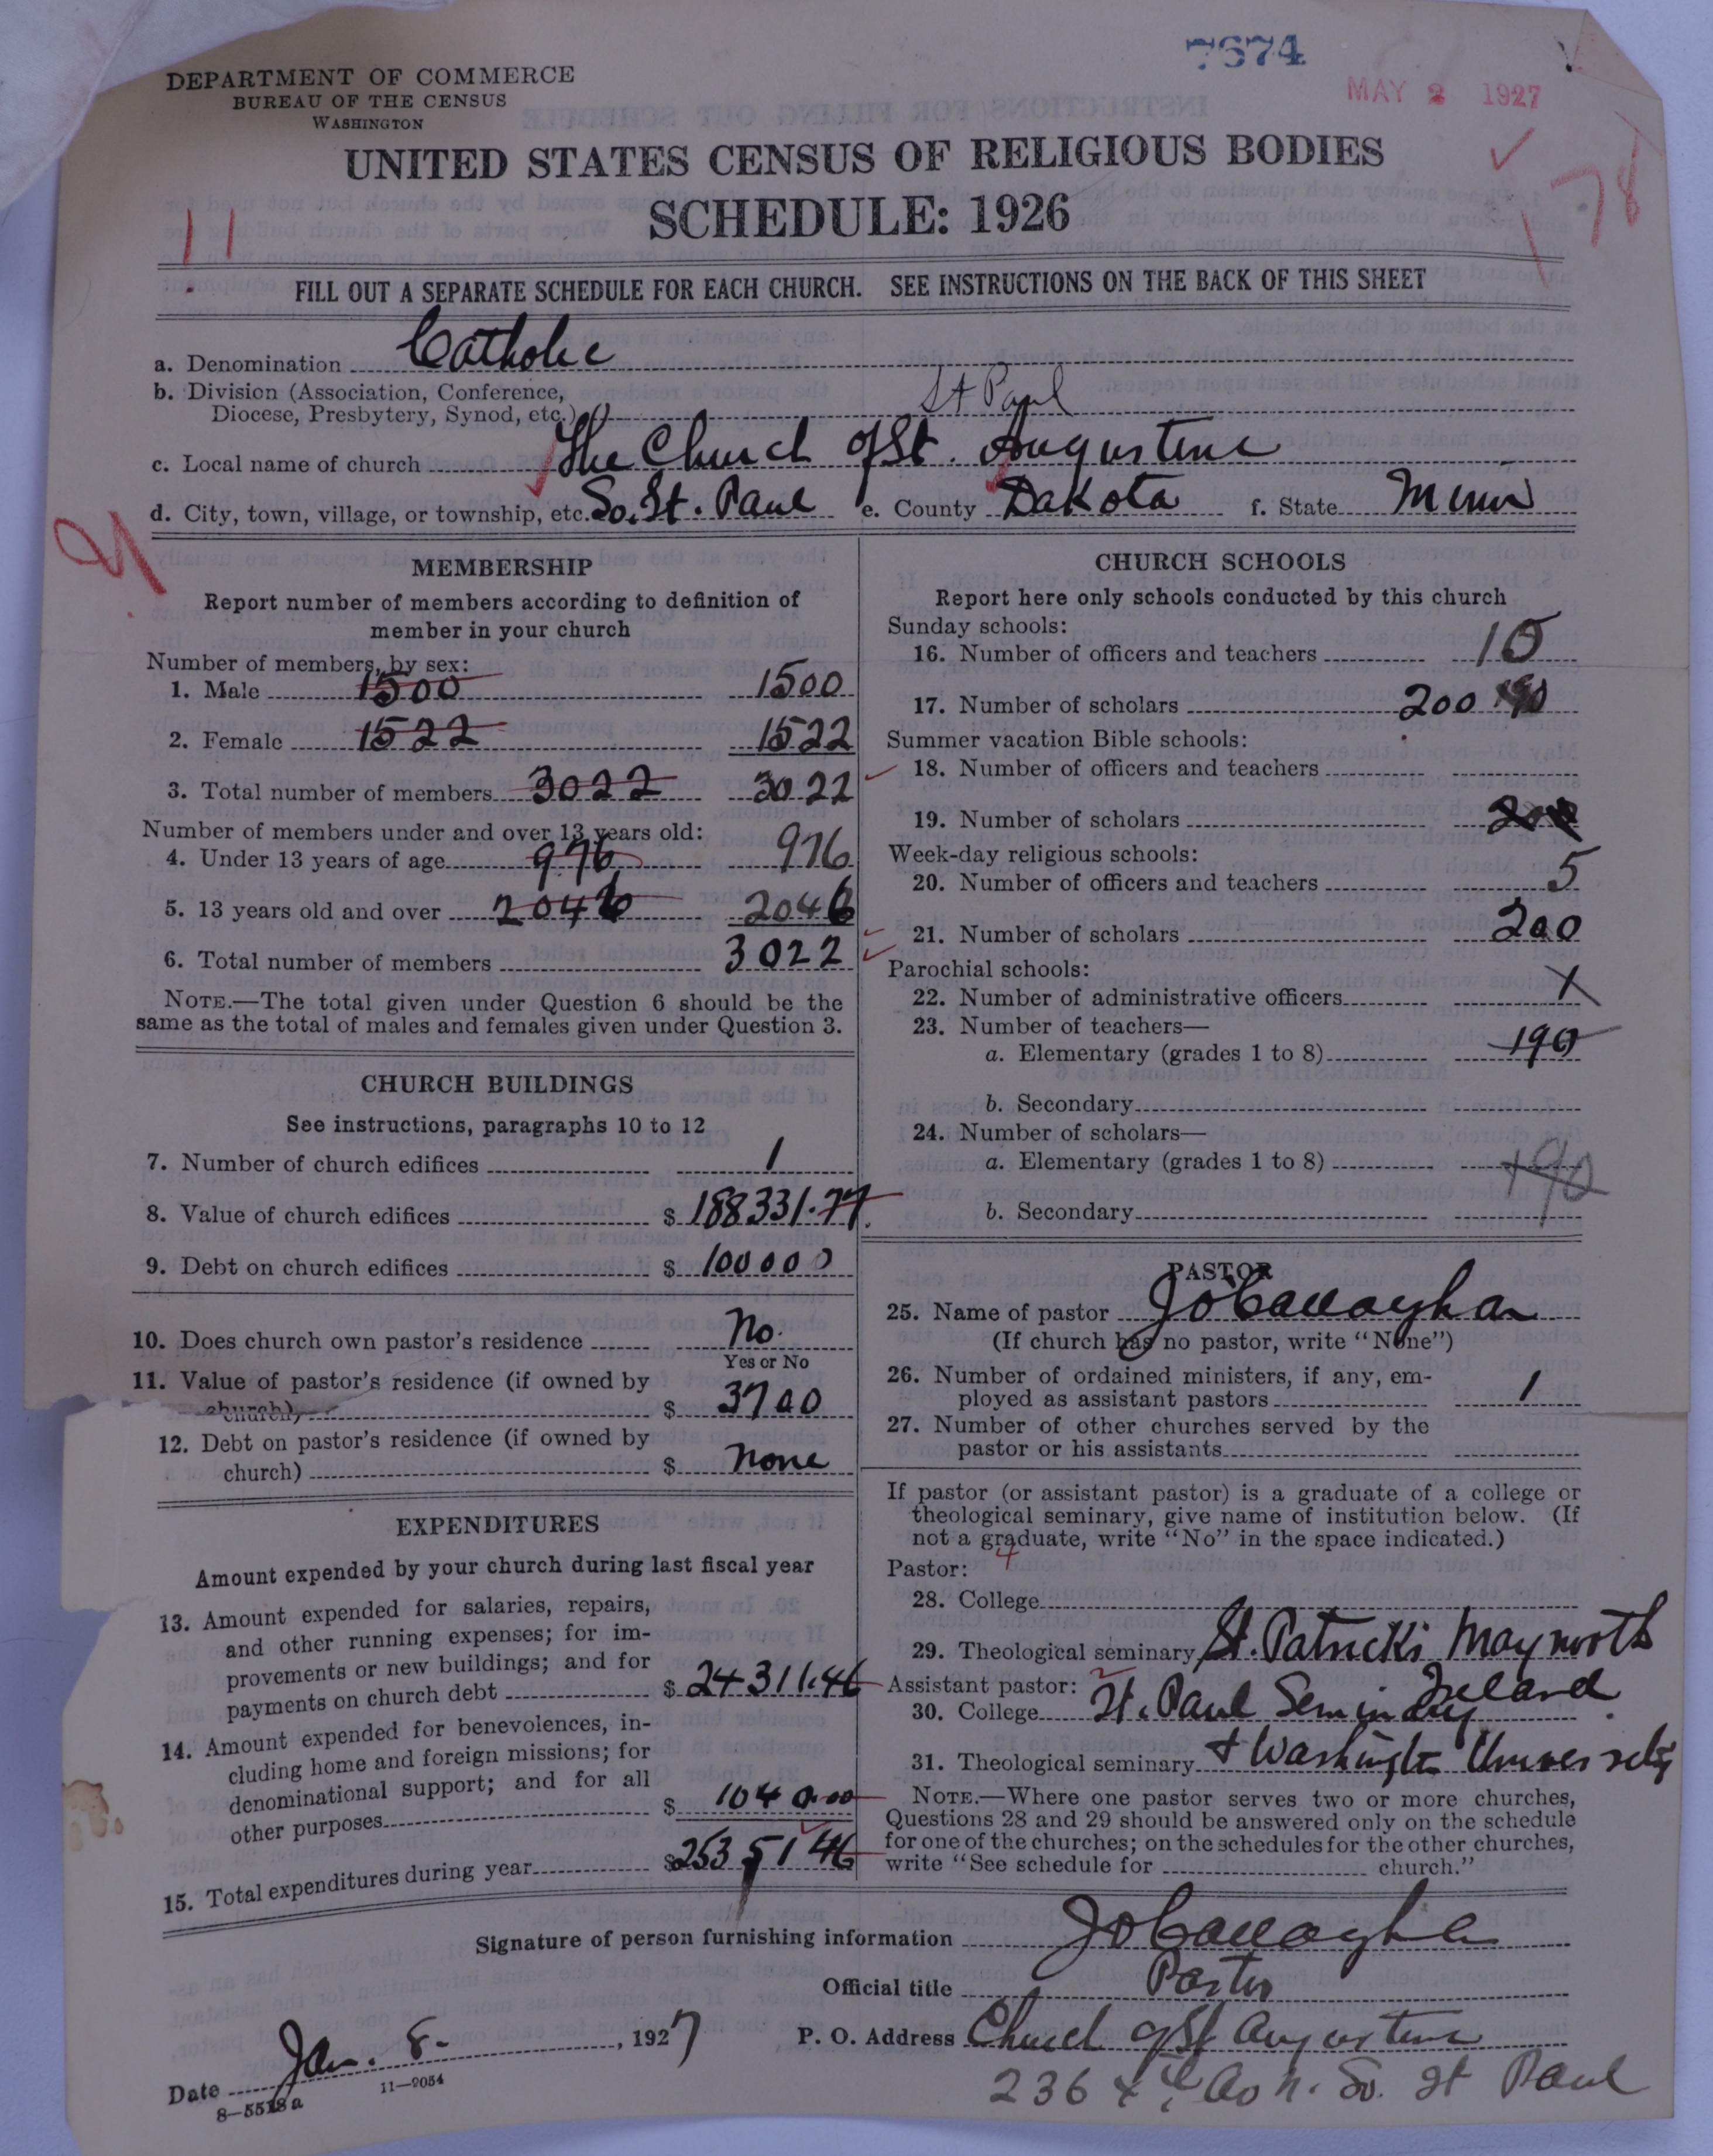 7674
MAY 2 1927
DEPARTMENT OF COMMERCE
BUREAU OF THE CENSUS
WASHINGTON
UNITED STATES CENSUS OF RELIGIOUS BODIES
SCHEDULE: 1926
11
178
FILL OUT A SEPARATE SCHEDULE FOR EACH CHURCH. SEE INSTRUCTIONS ON THE BACK OF THIS SHEET
a. Denomination Catholic
b. Division (Association, Conference,
Diocese, Presbytery, Synod, etc.) St Paul
c. Local name of church The Church of St. Augustine
d. City, town, village, or township, etc. So. St. Paul e. County Dakota f. State Minn
MEMBERSHIP
Report number of members according to definition of
member in your church
Number of members, by sex:
1. Male 1500 1500
2. Female 1522 1522
3. Total number of members 3022 3022
Number of members under and over 13 years old:
4. Under 13 years of age 976 976
5. 13 years old and over 2046 2046
6. Total number of members 3022
NOTE.—The total given under Question 6 should be the
same as the total of males and females given under Question 3.
CHURCH BUILDINGS
See instructions, paragraphs 10 to 12
7. Number of church edifices 1
8. Value of church edifices $ 188331.77
9. Debt on church edifices $ 100000
10. Does church own pastor's residence No.
Yes or No
11. Value of pastor's residence (if owned by
church) $ 3700
12. Debt on pastor's residence (if owned by
church) $ None
EXPENDITURES
Amount expended by your church during last fiscal year
13. Amount expended for salaries, repairs,
and other running expenses; for im-
provements or new buildings; and for
payments on church debt $ 24311.46
14. Amount expended for benevolences, in-
cluding home and foreign missions; for
denominational support; and for all
other purposes $ 1040.00
15. Total expenditures during year $ 25351 46
CHURCH SCHOOLS
Report here only schools conducted by this church
Sunday schools:
16. Number of officers and teachers 10
17. Number of scholars 200 190
Summer vacation Bible schools:
18. Number of officers and teachers
19. Number of scholars 200
Week-day religious schools:
20. Number of officers and teachers 5
21. Number of scholars 200
Parochial schools:
22. Number of administrative officers
23. Number of teachers—
a. Elementary (grades 1 to 8) 190
b. Secondary
24. Number of scholars—
a. Elementary (grades 1 to 8) 190
b. Secondary
PASTOR
25. Name of pastor J O'Callaghan
(If church has no pastor, write "None")
26. Number of ordained ministers, if any, em-
ployed as assistant pastors 1
27. Number of other churches served by the
pastor or his assistants
If pastor (or assistant pastor) is a graduate of a college or
theological seminary, give name of institution below. (If
not a graduate, write "No" in the space indicated.)
Pastor: 4
28. College
29. Theological seminary St. Patricks Maynooth
Ireland
Assistant pastor:
30. College St. Paul Seminary
31. Theological seminary + Washington University
NOTE.—Where one pastor serves two or more churches,
Questions 28 and 29 should be answered only on the schedule
for one of the churches; on the schedules for the other churches,
write "See schedule for church."
Signature of person furnishing information J O'Callaghan
Official title Pastor
P. O. Address Church of St Augustine
236 4th So. St Paul
Date Jan. 8. , 1927
8—5518a 11—2054